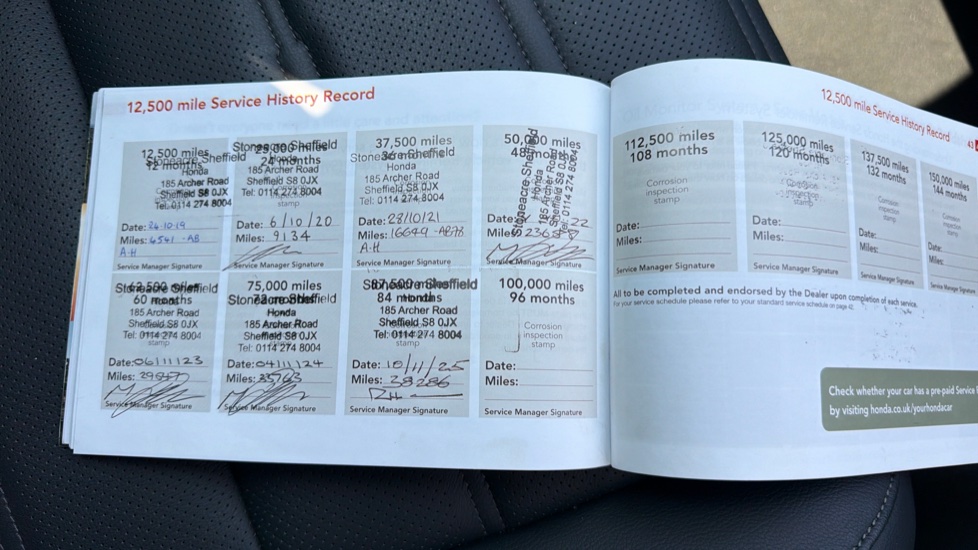 12,500 mile Service History Record
12,500 miles
12 months
Stoneacre Sheffield
Honda
185 Archer Road
Sheffield S8 0JX
Tel: 0114 274 8004
Date: 24-10-19
Miles: 6541 -AB
A-H
Service Manager Signature
25,000 miles
24 months
Stoneacre Sheffield
Honda
185 Archer Road
Sheffield S8 0JX
Tel: 0114 274 8004
stamp
Date: 6/10/20
Miles: 9134
Service Manager Signature
37,500 miles
36 months
Stoneacre Sheffield
Honda
185 Archer Road
Sheffield S8 0JX
Tel: 0114 274 8004
Date: 28/10/21
Miles: 16649 -AB78
A-H
Service Manager Signature
50,000 miles
48 months
Stoneacre Sheffield
Honda
185 Archer Road
Sheffield S8 0JX
Tel: 0114 274 8004
Date: 22
Miles: 2365
Service Manager Signature
62,500 miles
60 months
Stoneacre Sheffield
185 Archer Road
Sheffield S8 0JX
Tel: 0114 274 8004
stamp
Date: 06/11/23
Miles:
Service Manager Signature
75,000 miles
72 months
Stoneacre Sheffield
Honda
185 Archer Road
Sheffield S8 0JX
Tel: 0114 274 8004
Date: 04/11/24
Miles: 35763
Service Manager Signature
87,500 miles
84 months
Stoneacre Sheffield
Honda
185 Archer Road
Sheffield S8 0JX
Tel: 0114 274 8004
stamp
Date: 10/11/25
Miles: 38286
Service Manager Signature
100,000 miles
96 months
Corrosion
inspection
stamp
Date:
Miles:
Service Manager Signature
12,500 mile Service History Record
43
112,500 miles
108 months
Corrosion
inspection
stamp
Date:
Miles:
Service Manager Signature
125,000 miles
120 months
Corrosion
inspection
stamp
Date:
Miles:
Service Manager Signature
137,500 miles
132 months
Corrosion
inspection
stamp
Date:
Miles:
Service Manager Signature
150,000 miles
144 months
Corrosion
inspection
stamp
Date:
Miles:
Service Manager Signature
All to be completed and endorsed by the Dealer upon completion of each service.
For your service schedule please refer to your standard service schedule on page 42.
Check whether your car has a pre-paid Service
by visiting honda.co.uk/yourhondacar